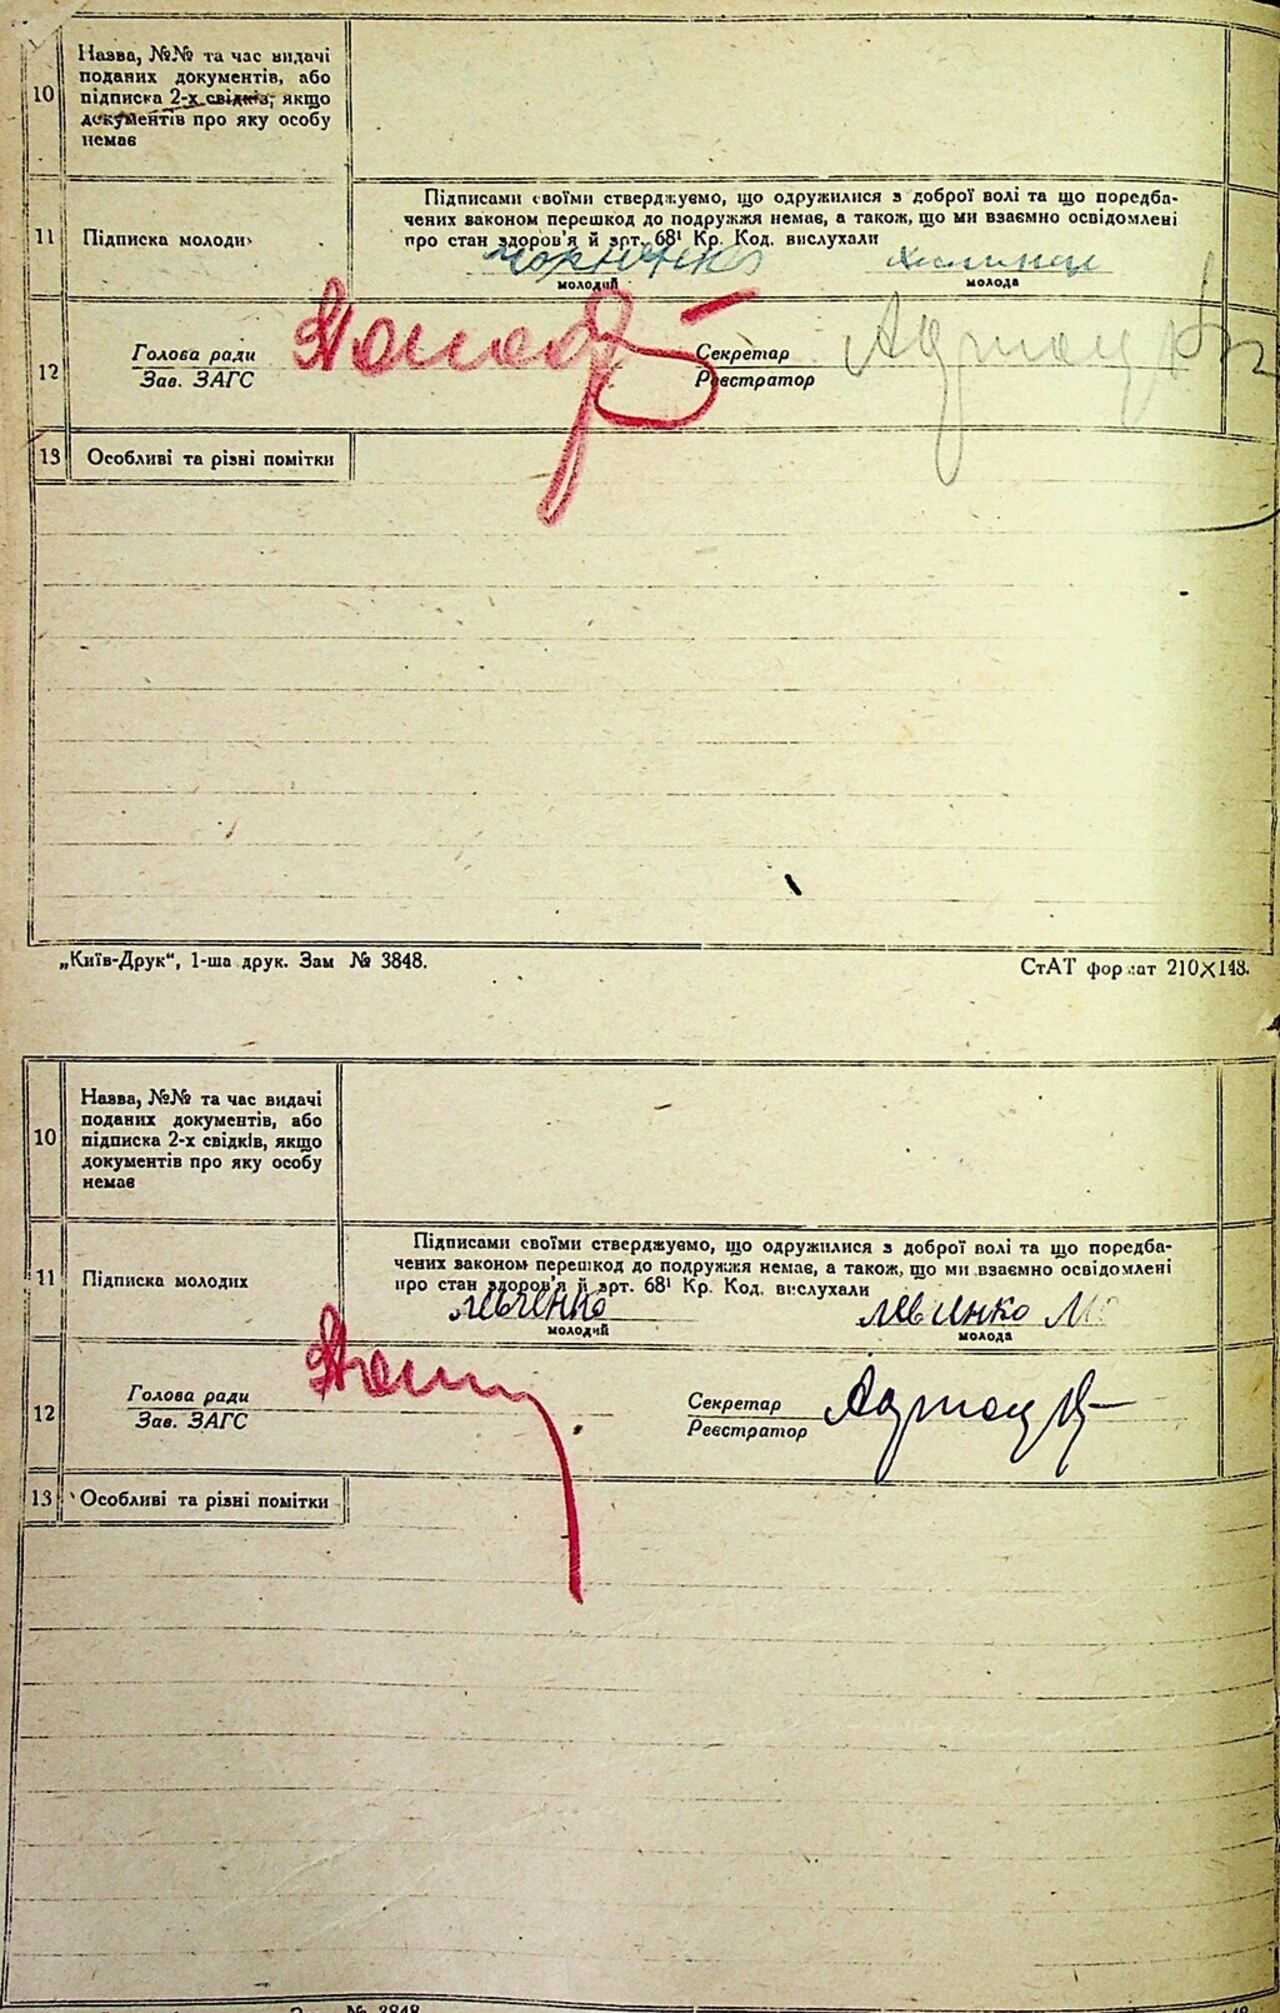 10
Назва, №№ та час видачі
поданих документів, або
підписка 2-х свідків, якщо
документів про яку особу
немає
11
Підписка молоди
Підписами своїми стверджуємо, що одружилися з доброї волі та що передба-
чених законом перешкод до подружжя немає, а також, що ми взаємно освідомлені
про стан здоров'я й арт. 68¹ Кр. Код. вислухали
молодий
молода
12
Голова ради
Зав. ЗАГС
Секретар
Реєстратор
13
Особливі та різні помітки
„Київ-Друк“, 1-ша друк. Зам № 3848.
СтАТ формат 210X148.
10
Назва, №№ та час видачі
поданих документів, або
підписка 2-х свідків, якщо
документів про яку особу
немає
11
Підписка молодих
Підписами своїми стверджуємо, що одружилися з доброї волі та що передба-
чених законом перешкод до подружжя немає, а також, що ми взаємно освідомлені
про стан здоров'я й арт. 68¹ Кр. Код. вислухали
Левченко Левченко М
молодий молода
12
Голова ради
Зав. ЗАГС
Секретар
Реєстратор
13
Особливі та різні помітки
№ 3848